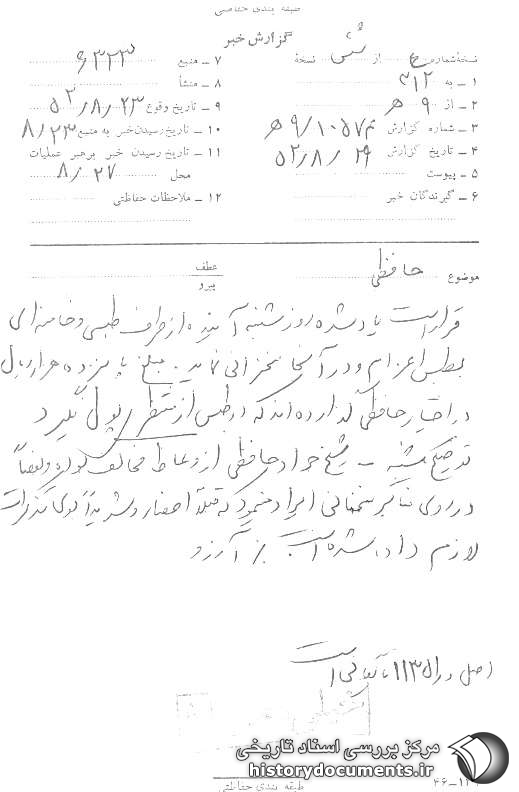 طبقه بندی حفاظتی
گزارش خبر
نسخهٔ شماره ۴ از شش نسخهٔ
۱ ـ به ۳۱۲
۲ ـ از ۹ ﻫ
۳ ـ شماره گزارش ۹/۱۰۵۷۳ ﻫ
۴ ـ تاریخ گزارش ۵۲/۸/۲۹
۵ ـ پیوست
۶ ـ گیرندگان خبر
۷ ـ منبع ۶۳۲۳
۸ ـ منشأ
۹ ـ تاریخ وقوع ۵۲/۸/۲۳
۱۰ ـ تاریخ رسیدن خبر به منبع ۸/۲۳
۱۱ ـ تاریخ رسیدن خبر برهبر عملیات
محل ۸/۲۷
۱۲ ـ ملاحظات حفاظتی
موضوع حافظی
عطف
پیرو
قرار است یاد شده روز شنبه آینده از طرف طبسی و خامنه‌ای
بطبس اعزام و در آنجا سخنرانی نماید. مبلغ پانزده هزار ریال
در اختیار حافظی گذارده‌اند که در طبس از منتظری پول نگیرد
نظریه شنبه ـ شیخ جواد حافظی از وعاظ مخالف بوده و بعضاً
در روی منابر سخنانی ایراد مینمود که قبلاً احضار و شدیداً تذکرات
لازم داده شده است. آرزو
اصل در ۱۱۳۵۱ بایگانی است
مرکز بررسی اسناد تاریخی
historydocuments.ir
طبقه بندی حفاظتی